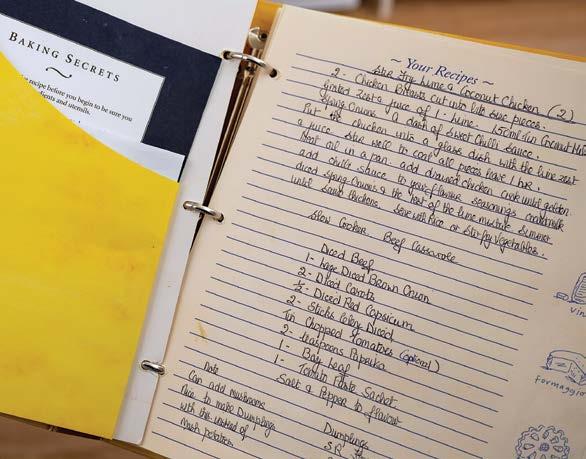 BAKING SECRETS
recipe before you begin to be sure you
ients and utensils.
~ Your Recipes ~
Stir Fry Lime & Coconut Chicken (2)
2 - Chicken Breasts cut into bite size pieces.
Grated zest & juice of 1 - Lime. 150ml tin Coconut Milk
Spring Onions. A dash of Sweet Chilli Sauce.
Put the chicken into a glass dish with the lime zest
& juice. Stir well to coat all pieces. Leave 1 hr.
Heat oil in a pan. add drained chicken. Cook until golden
add chilli sauce to your flavour seasonings coconut milk
diced spring onions & the rest of the lime mixture. Simmer
until sauce thickens. Serve with Rice or Stir fry Vegetables.
Slow Cooker Beef Casserole
Diced Beef
1 - Large Diced Brown Onion
2 - Diced Carrots
½ - Diced Red Capsicum
2 - Sticks Celery Diced
Tin Chopped Tomatoes (optional)
2 - teaspoons Paprika
1 - Bay Leaf
1 - Tomato Paste Sachet
Salt & Pepper to flavour
Note
Can add mushrooms
Nice to make Dumplings
with this instead of
Mash potatoes
Dumplings
SR
vin
formaggio